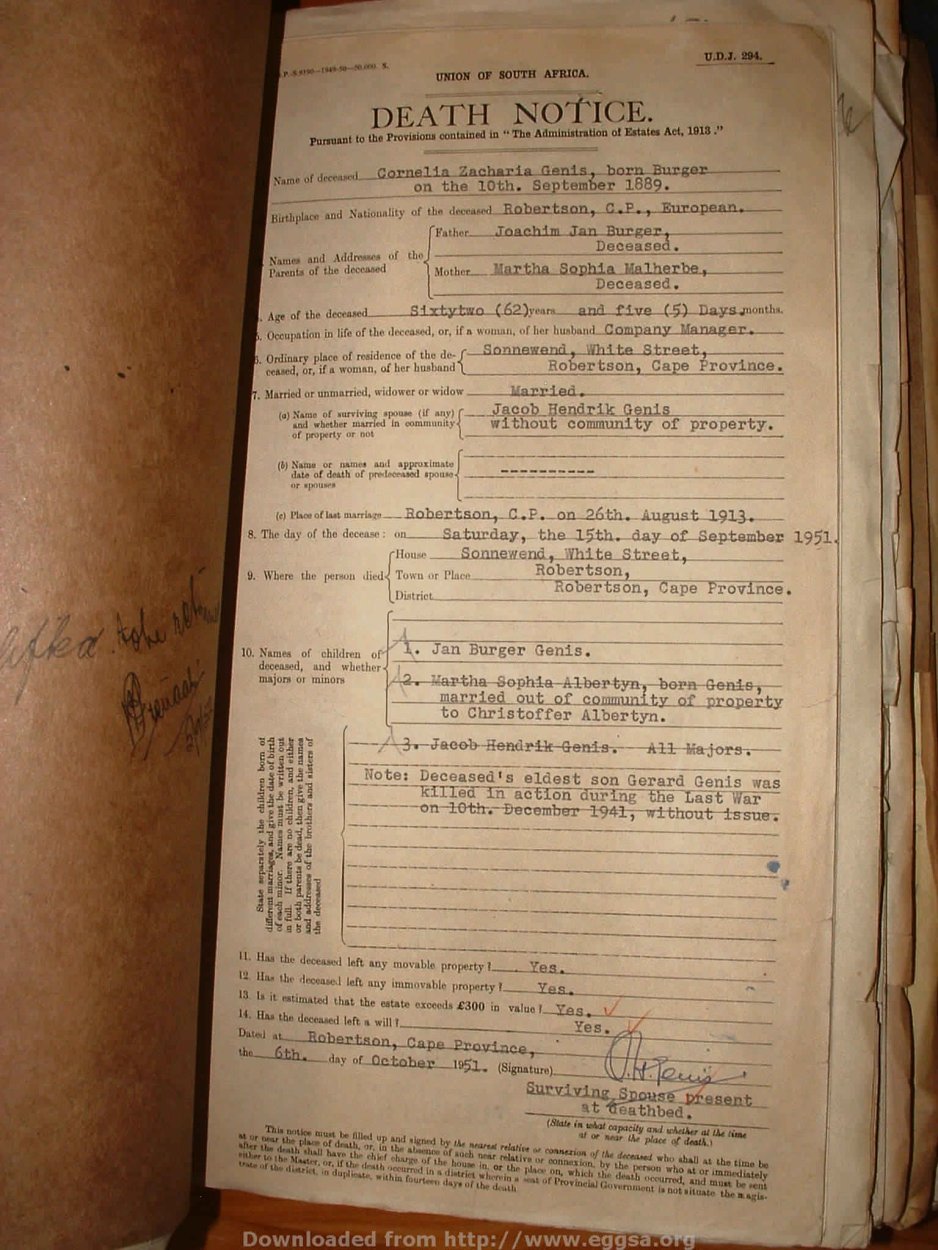 U.D.J. 294.
UNION OF SOUTH AFRICA.
DEATH NOTICE.
Pursuant to the Provisions contained in "The Administration of Estates Act, 1913."
Name of deceased Cornelia Zacharia Genis, born Burger
on the 10th. September 1889.
Birthplace and Nationality of the deceased Robertson, C.P., European.
Names and Addresses of the Parents of the deceased
Father Joachim Jan Burger,
Deceased.
Mother Martha Sophia Malherbe,
Deceased.
Age of the deceased Sixtytwo (62) years and five (5) Days months.
5. Occupation in life of the deceased, or, if a woman, of her husband Company Manager.
6. Ordinary place of residence of the de-
ceased, or, if a woman, of her husband
Sonnewend, White Street,
Robertson, Cape Province.
7. Married or unmarried, widower or widow Married.
(a) Name of surviving spouse (if any)
and whether married in community
of property or not
Jacob Hendrik Genis
without community of property.
(b) Name or names and approximate
date of death of predeceased spouse
or spouses
----------
(c) Place of last marriage Robertson, C.P. on 26th. August 1913.
8. The day of the decease: on Saturday, the 15th. day of September 1951.
9. Where the person died
House Sonnewend, White Street,
Town or Place Robertson,
District Robertson, Cape Province.
10. Names of children of
deceased, and whether
majors or minors
1. Jan Burger Genis.
2. Martha Sophia Albertyn, born Genis,
married out of community of property
to Christoffer Albertyn.
3. Jacob Hendrik Genis. All Majors.
State separately the children born of
different marriages, and give the date of birth
of each minor. Names must be written out
in full. If there are no children, and either
or both parents be dead, then give the names
and addresses of the brothers and sisters of
the deceased
Note: Deceased's eldest son Gerard Genis was
killed in action during the Last War
on 10th. December 1941, without issue.
11. Has the deceased left any movable property? Yes.
12. Has the deceased left any immovable property? Yes.
13. Is it estimated that the estate exceeds £300 in value? Yes.
14. Has the deceased left a will? Yes.
Dated at Robertson, Cape Province,
the 6th. day of October 1951. (Signature) J.H. Genis
Surviving Spouse present
at deathbed.
(State in what capacity and whether at the time
at or near the place of death.)
This notice must be filled up and signed by the nearest relative or connexion of the deceased who shall at the time be
at or near the place of death, or, in the absence of such near relative or connexion, by the person who at or immediately
after the death shall have the chief charge of the house in, or the place on, which the death occurred, and must be sent
either to the Master, or, if the death occurred in a district wherein a seat of Provincial Government is not situate the magis-
trate of the district, in duplicate, within fourteen days of the death
Downloaded from http://www.eggsa.org